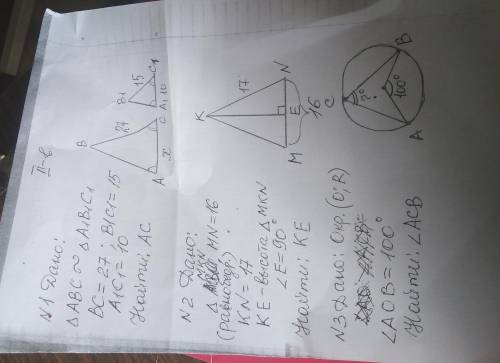 II-в
N1 Дано:
△ABC ∾ △A1B1C1
BC=27; B1C1=15
A1C1=10
Найти: AC
B
27
A
x
C
B1
15
A1
10
C1
N2 Дано:
△MKN MN=16
(равнобедр.)
KN=17
KE-высота △MKN
∠E=90°
Найти: KE
K
17
N
E
M
16
N3 Дано: Окр.(O;R)
∠AOB=100°
Найти: ∠ACB
C
?°
100°
B
A